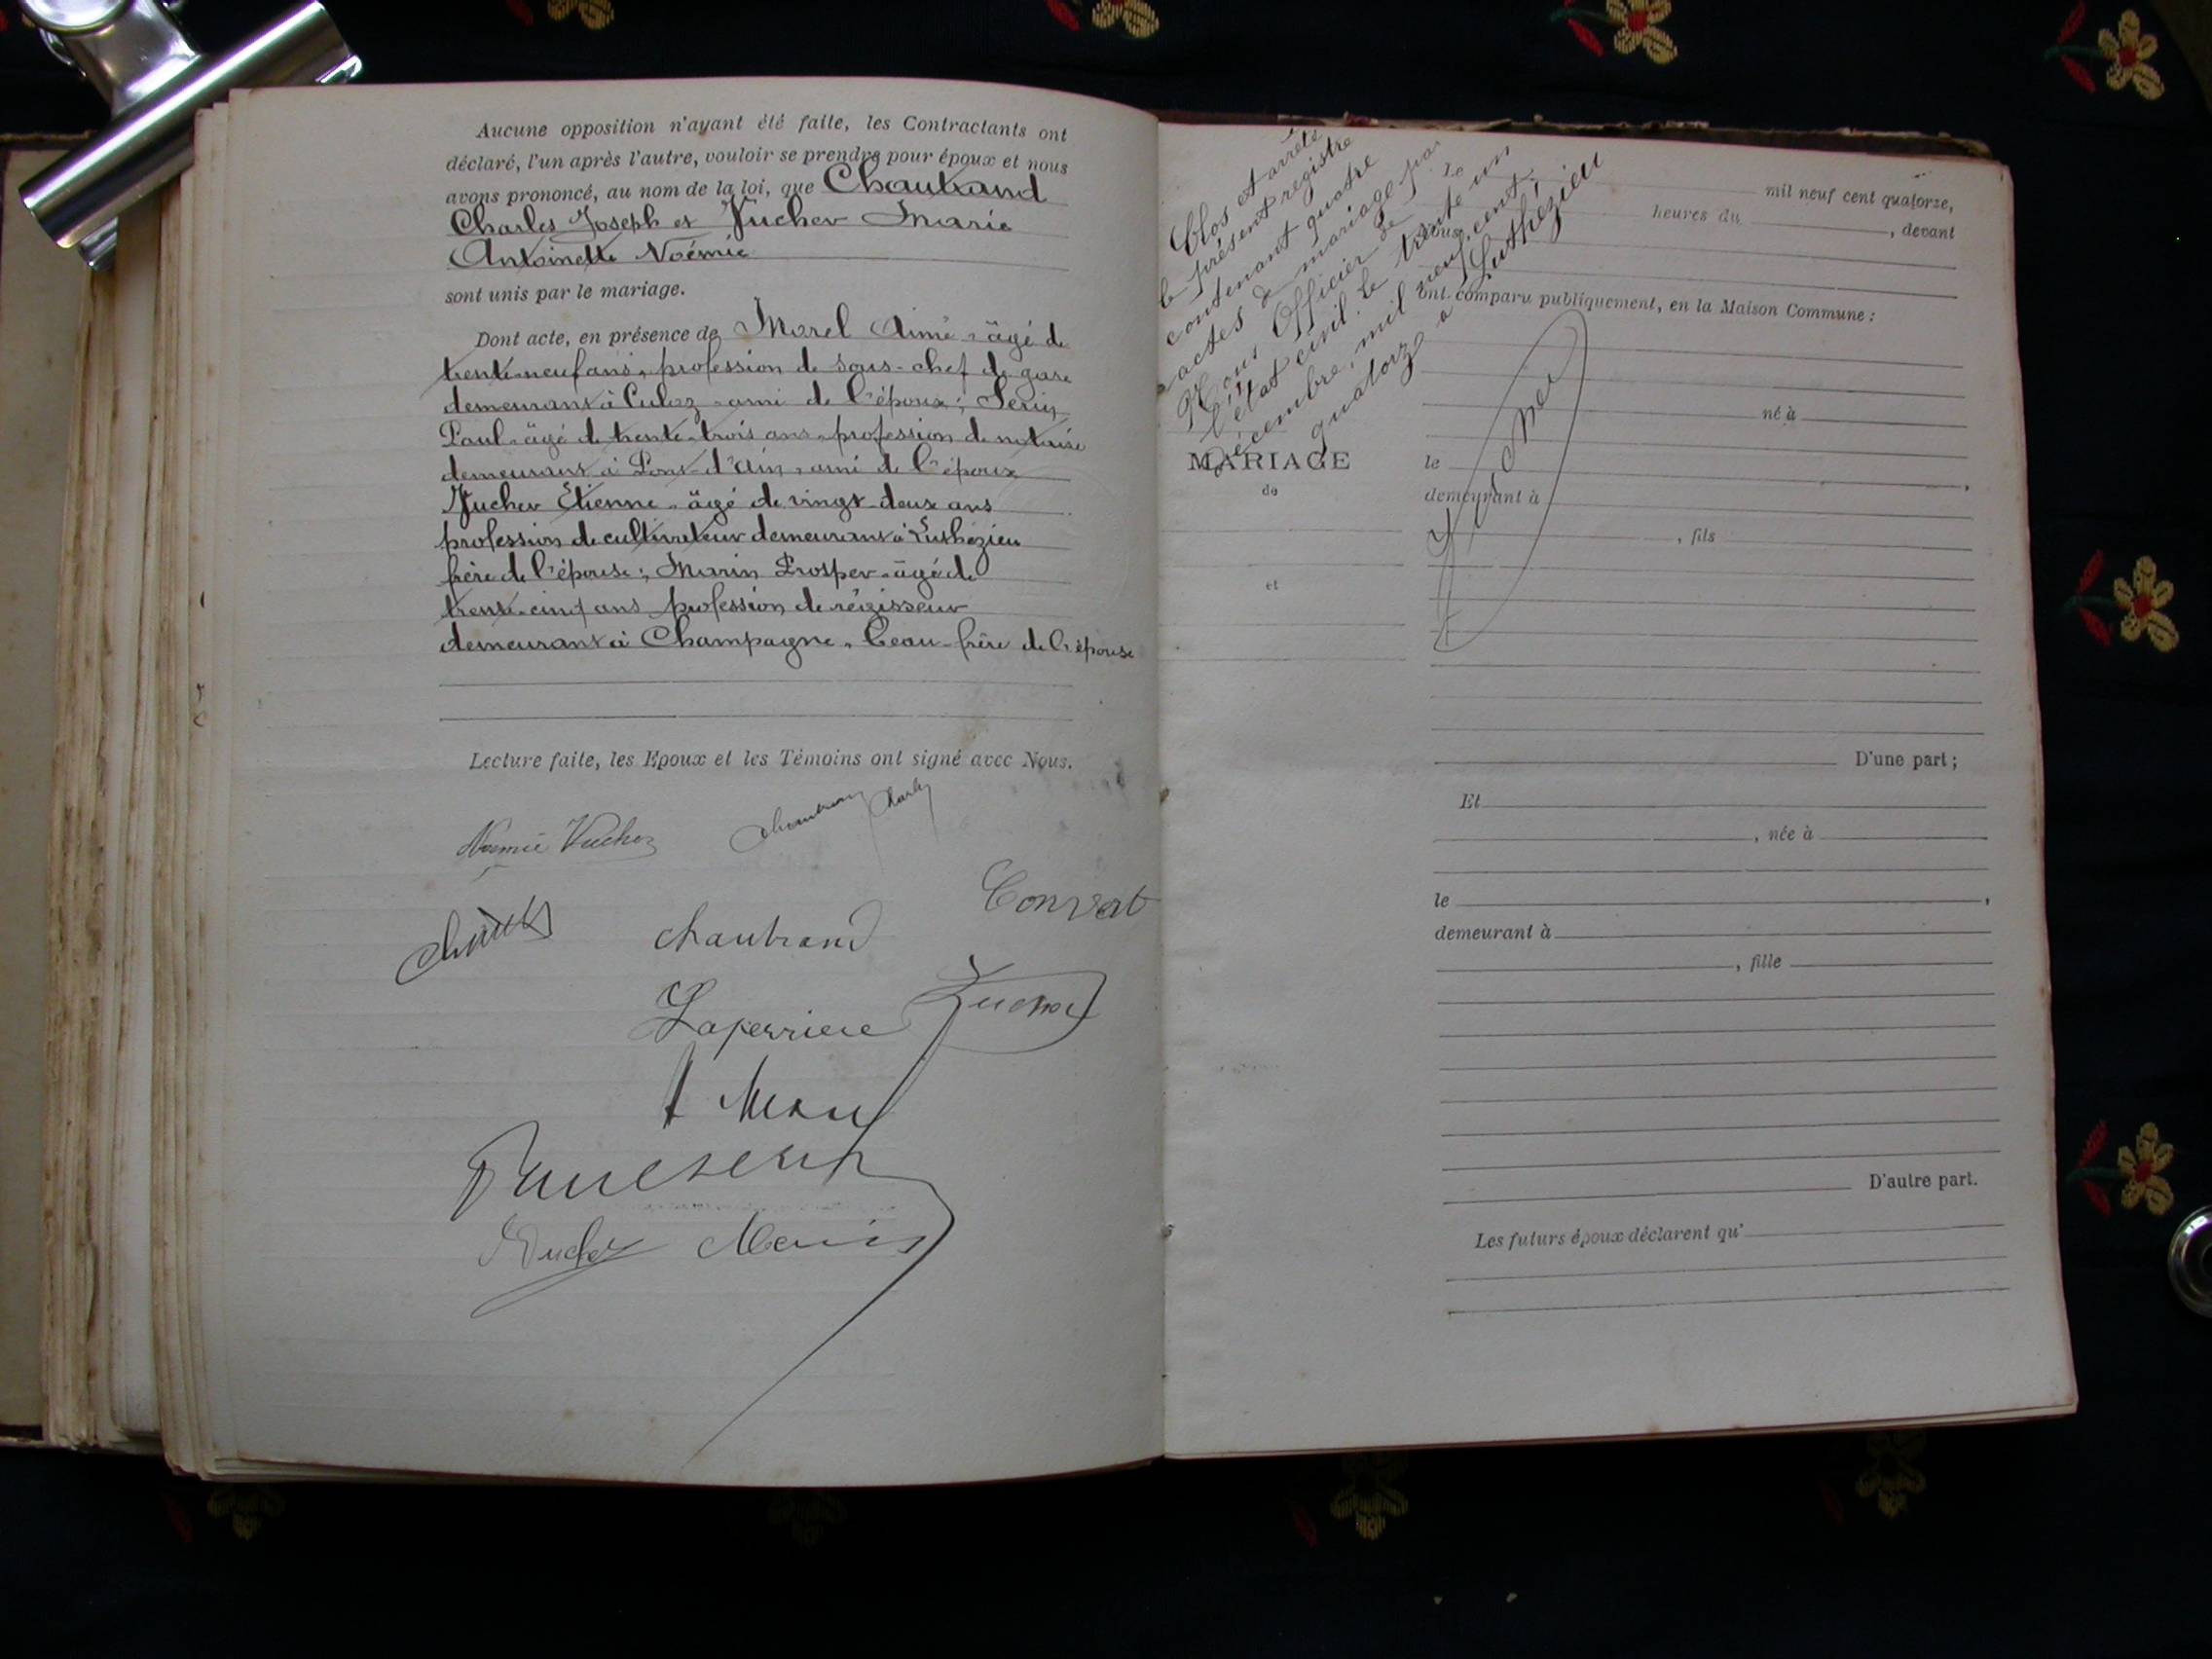 Aucune opposition n'ayant été faite, les Contractants ont
déclaré, l'un après l'autre, vouloir se prendre pour époux et nous
avons prononcé, au nom de la loi, que Chautrand
Charles Joseph et Vucher Marie
Antoinette Noémie
sont unis par le mariage.
Dont acte, en présence de Morel Aimé, âgé de
trente-neuf ans, profession de sous-chef de gare
demeurant à Culoz, ami de l'époux; Serin
Paul, âgé de trente-trois ans, profession de notaire
demeurant à Pont-d'Ain, ami de l'époux
Vucher Étienne, âgé de vingt-deux ans
profession de cultivateur demeurant à Luthézieu
frère de l'épouse; Marin Prosper, âgé de
trente-cinq ans profession de régisseur
demeurant à Champagne, beau-frère de l'épouse
Lecture faite, les Epoux et les Témoins ont signé avec Nous.
Noémie Vucher
Charles
Convert
Chautrand
Laperriere
Vucher Marin
Clos et arrêté
le présent registre
contenant quatre
actes de mariage par
Nous Officier de
l'état civil. le trente un
décembre, mil neuf cent
quatorze à Luthézieu
Le
mil neuf cent quatorze,
heures du , devant
Nous
ont comparu publiquement, en la Maison Commune :
né à
MARIAGE
de
et
le ,
demeurant à
, fils
D'une part ;
Et
, née à
le ,
demeurant à
, fille
D'autre part.
Les futurs époux déclarent qu'